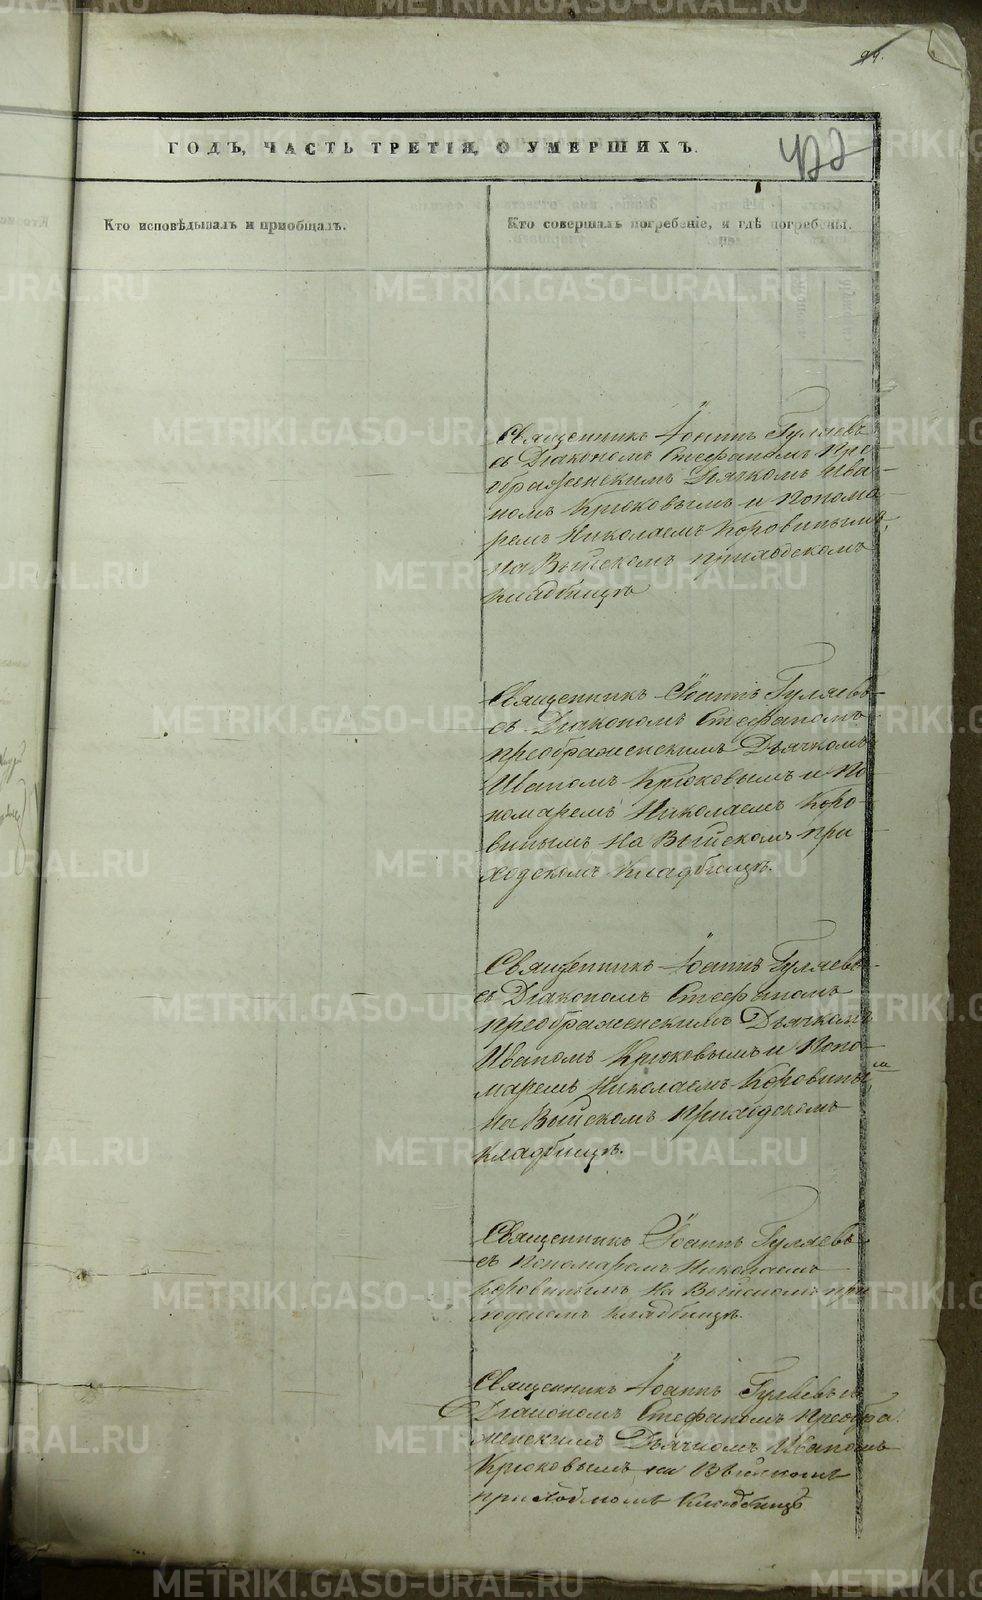 94.
ГОДЪ, ЧАСТЬ ТРЕТІЯ, О УМЕРШИХЪ.
422
Кто исповѣдывалъ и пріобщалъ.
Кто совершалъ погребеніе, и гдѣ погребены.
Священникъ Іоаннъ Гуляевъ
съ Діакономъ Стефаномъ Пре-
ображенскимъ Дьячкомъ Ива-
номъ Крюковымъ и Понома-
ремъ Николаемъ Коровинымъ,
на Выйскомъ приходскомъ
кладбищѣ
Священникъ Іоаннъ Гуляевъ
съ Діакономъ Стефаномъ
преображенскимъ Дьячкомъ
Иваномъ Крюковымъ и По-
номаремъ Николаемъ Коро-
винымъ на Выйскомъ при
ходскомъ Кладбищѣ.
Священникъ Іоаннъ Гуляевъ
съ Діакономъ Стефаномъ
преображенскимъ Дьячкомъ
Иваномъ Крюковымъ и Поно-
маремъ Николаемъ Коровины
мъ
на Выйскомъ Приходскомъ
Кладбищѣ.
Священникъ Іоаннъ Гуляевъ
съ Пономаремъ Николаемъ
Коровинымъ на Выйскомъ при
ходскомъ Кладбищѣ.
Священникъ Іоаннъ Гуляевъ съ
Діакономъ Стефаномъ Преобра
женскимъ Дьячкомъ Иваномъ
Крюковымъ на Выйскомъ
приходскомъ Кладбищѣ
METRIKI.GASO-URAL.RU